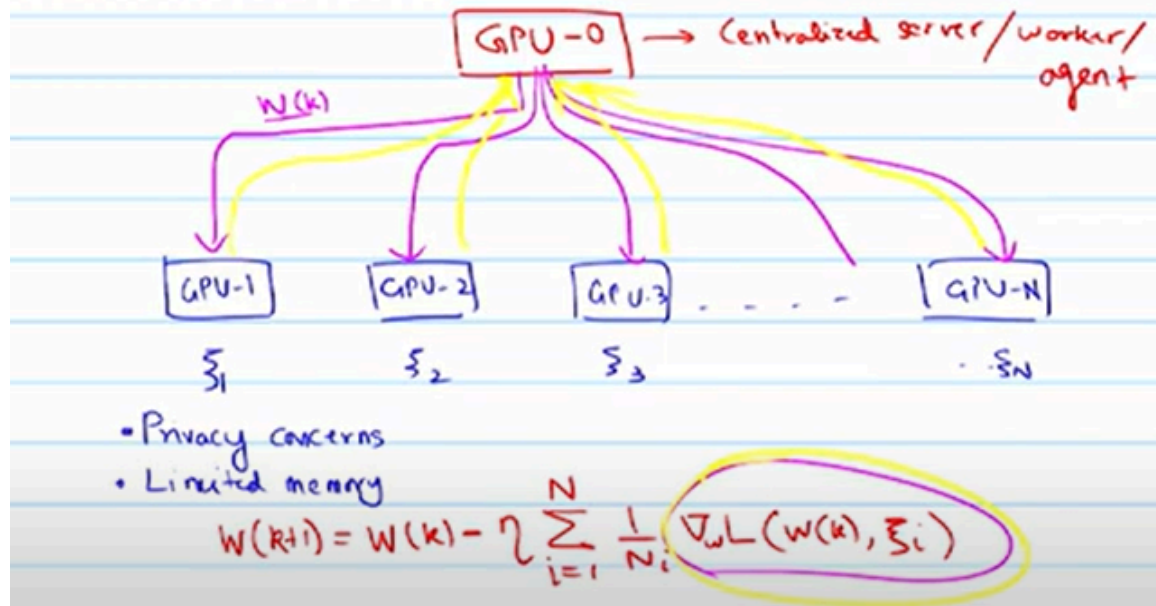 GPU-0 → Centralized server/worker/
agent
W(k)
GPU-1 GPU-2 GPU-3 . . . . - GPU-N
ξ₁ ξ₂ ξ₃ . . ξN
• Privacy concerns
• Limited memory
W(k+1) = W(k) - η ∑_{i=1}^{N} 1/Nᵢ ∇_w L(W(k), ξᵢ)